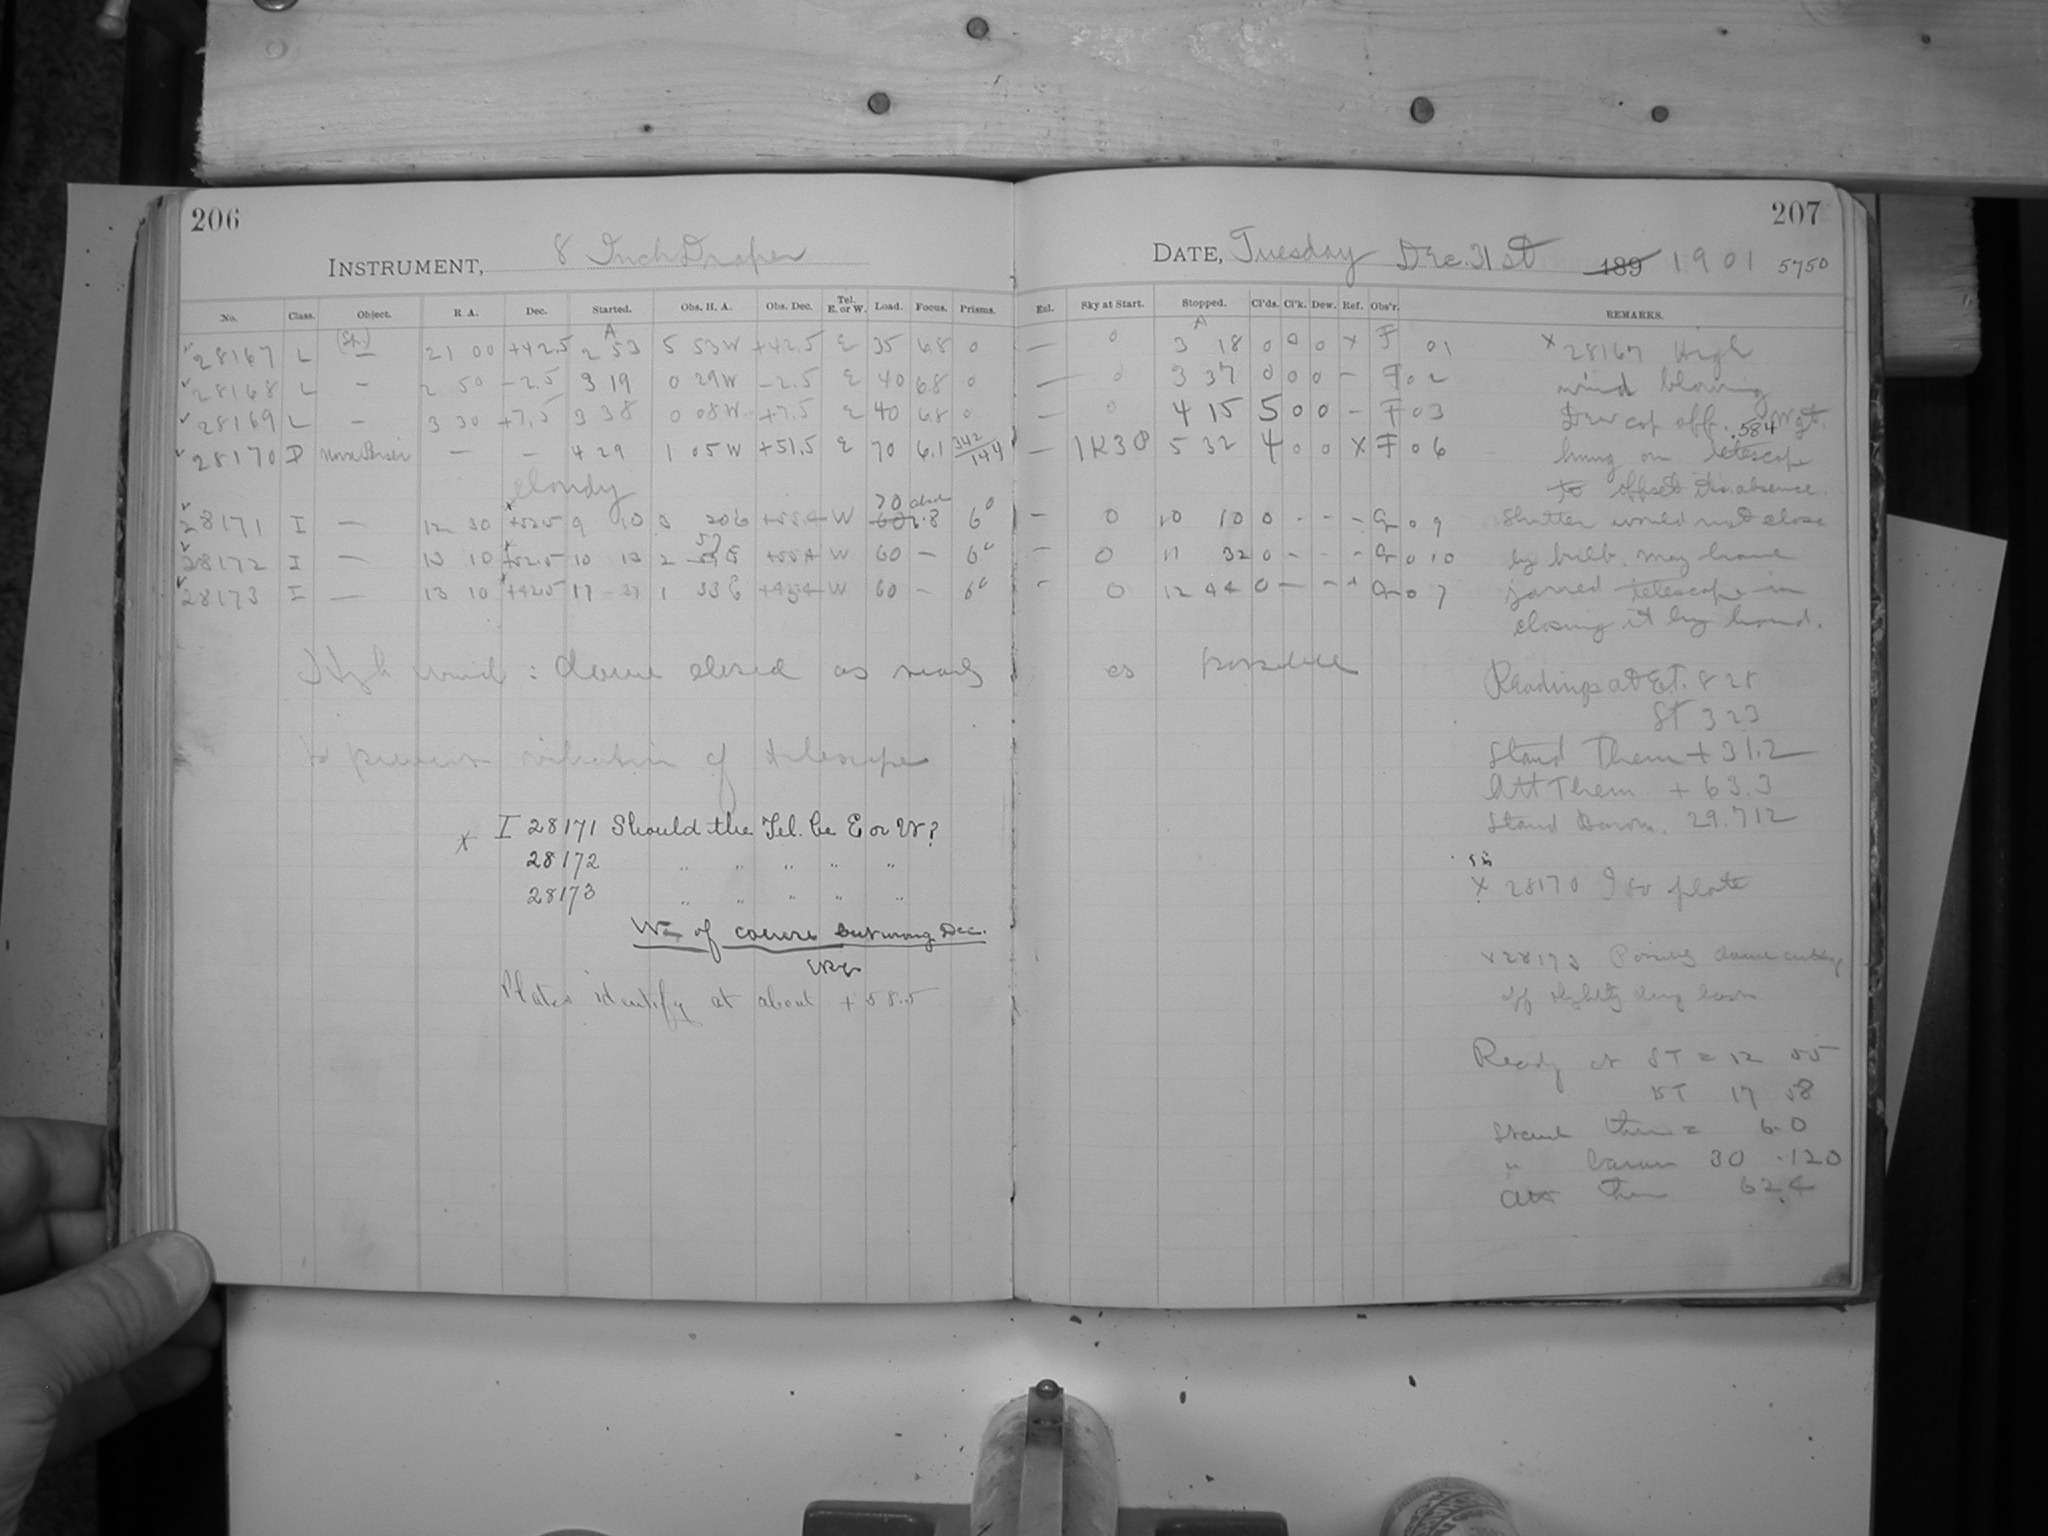 206
207
INSTRUMENT, 8 Inch Draper
DATE, Tuesday Dec. 31st 189 1901 5750
No. Class. Object. R. A. Dec. Started. Obs. H. A. Obs. Dec. Tel. E. or W. Load. Focus. Prisms.
Eul. Sky at Start. Stopped. Cl'ds. Cl'k. Dew. Ref. Obs'r. REMARKS.
28167 L (Sh.) — 21 00 +42.5 A 2 53 5 53 W +42.5 E 35 6.8 0 — 0 A 3 18 0 0 0 x F 01
28168 L — 2 50 -2.5 3 19 0 29 W -2.5 E 40 6.8 0 — 0 3 37 0 0 0 - F 02
28169 L — 3 30 +7.5 3 38 0 08 W +7.5 E 40 6.8 0 — 0 4 15 5 0 0 - F 03
28170 D Nova Persei — — 4 29 1 05 W +51.5 E 70 6.1 342/144 — 1K30 5 32 4 0 0 X F 06
cloudy
28171 I — 12 30 +52.5 9 10 3 20 E W 70 60 6.8 6° - 0 10 10 0 - - - 09
28172 I — 13 10 +52.5 10 13 2 57 E W 60 — 6° - 0 11 32 0 - - - 010
28173 I — 13 10 +42.5 11 1 33 E W 60 — 6° - 0 12 44 0 - - + 07
x 28167 High
wind blowing
Dew cap off. .584 Wgt.
hung on telescope
to offset its absence.
Shutter would not close
by bulb. may have
jarred telescope in
closing it by hand.
High wind: dome closed as nearly as possible
to prevent vibration of telescope
Readings at E.T. 8 28
ST 3 23
Stand Therm + 31.2
Att Therm + 63.3
Stand Barom. 29.712
x I 28171 Should the Tel. be E or W?
28172 " " " " "
28173 " " " " "
W— of course but wrong Dec.
Plates identify at about + 58.5
X 28170 Iso plate
x 28173 Possibly dome cutting
off slightly
Ready at ST = 12 55
17 58
Stand therm = 6.0
" barom 30 .120
Att therm 62.4